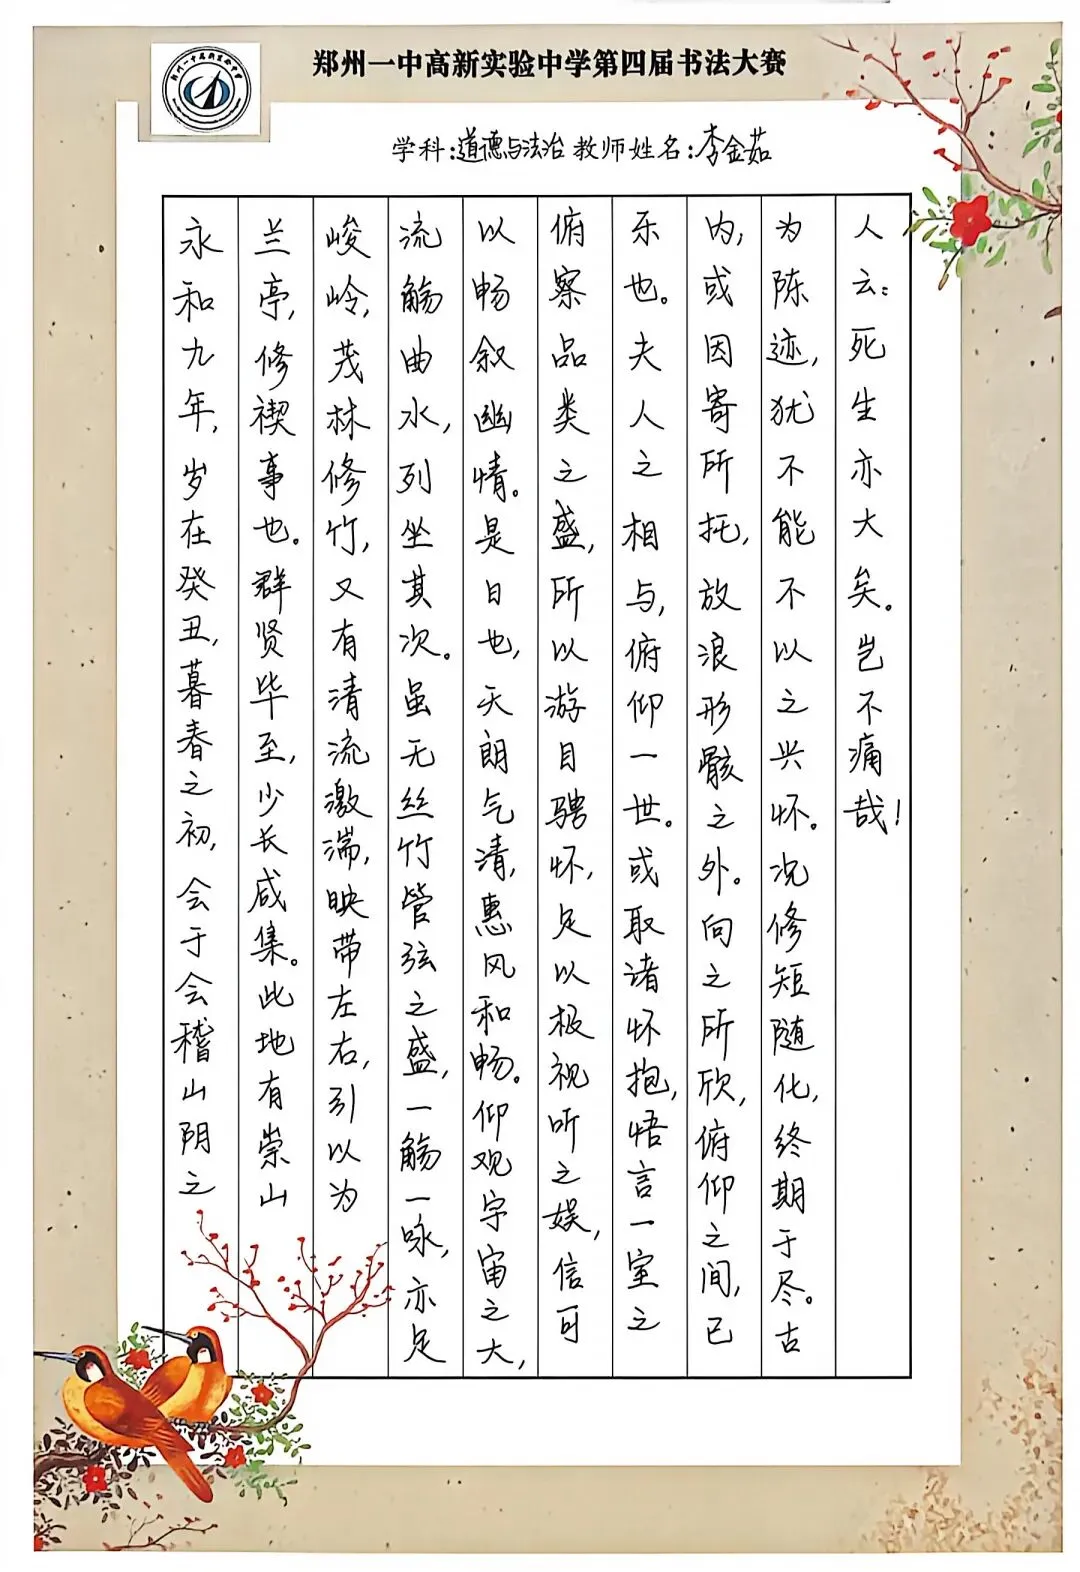 郑州一中高新实验中学第四届书法大赛
学科:道德与法治 教师姓名:李金茹
永和九年,岁在癸丑,暮春之初,会于会稽山阴之
兰亭,修禊事也。群贤毕至,少长咸集。此地有崇山
峻岭,茂林修竹,又有清流激湍,映带左右,引以为
流觞曲水,列坐其次。虽无丝竹管弦之盛,一觞一咏,亦足
以畅叙幽情。是日也,天朗气清,惠风和畅。仰观宇宙之大,
俯察品类之盛,所以游目骋怀,足以极视听之娱,信可
乐也。夫人之相与,俯仰一世。或取诸怀抱,悟言一室之
内,或因寄所托,放浪形骸之外。向之所欣,俯仰之间,已
为陈迹,犹不能不以之兴怀。况修短随化,终期于尽。古
人云:死生亦大矣。岂不痛哉!